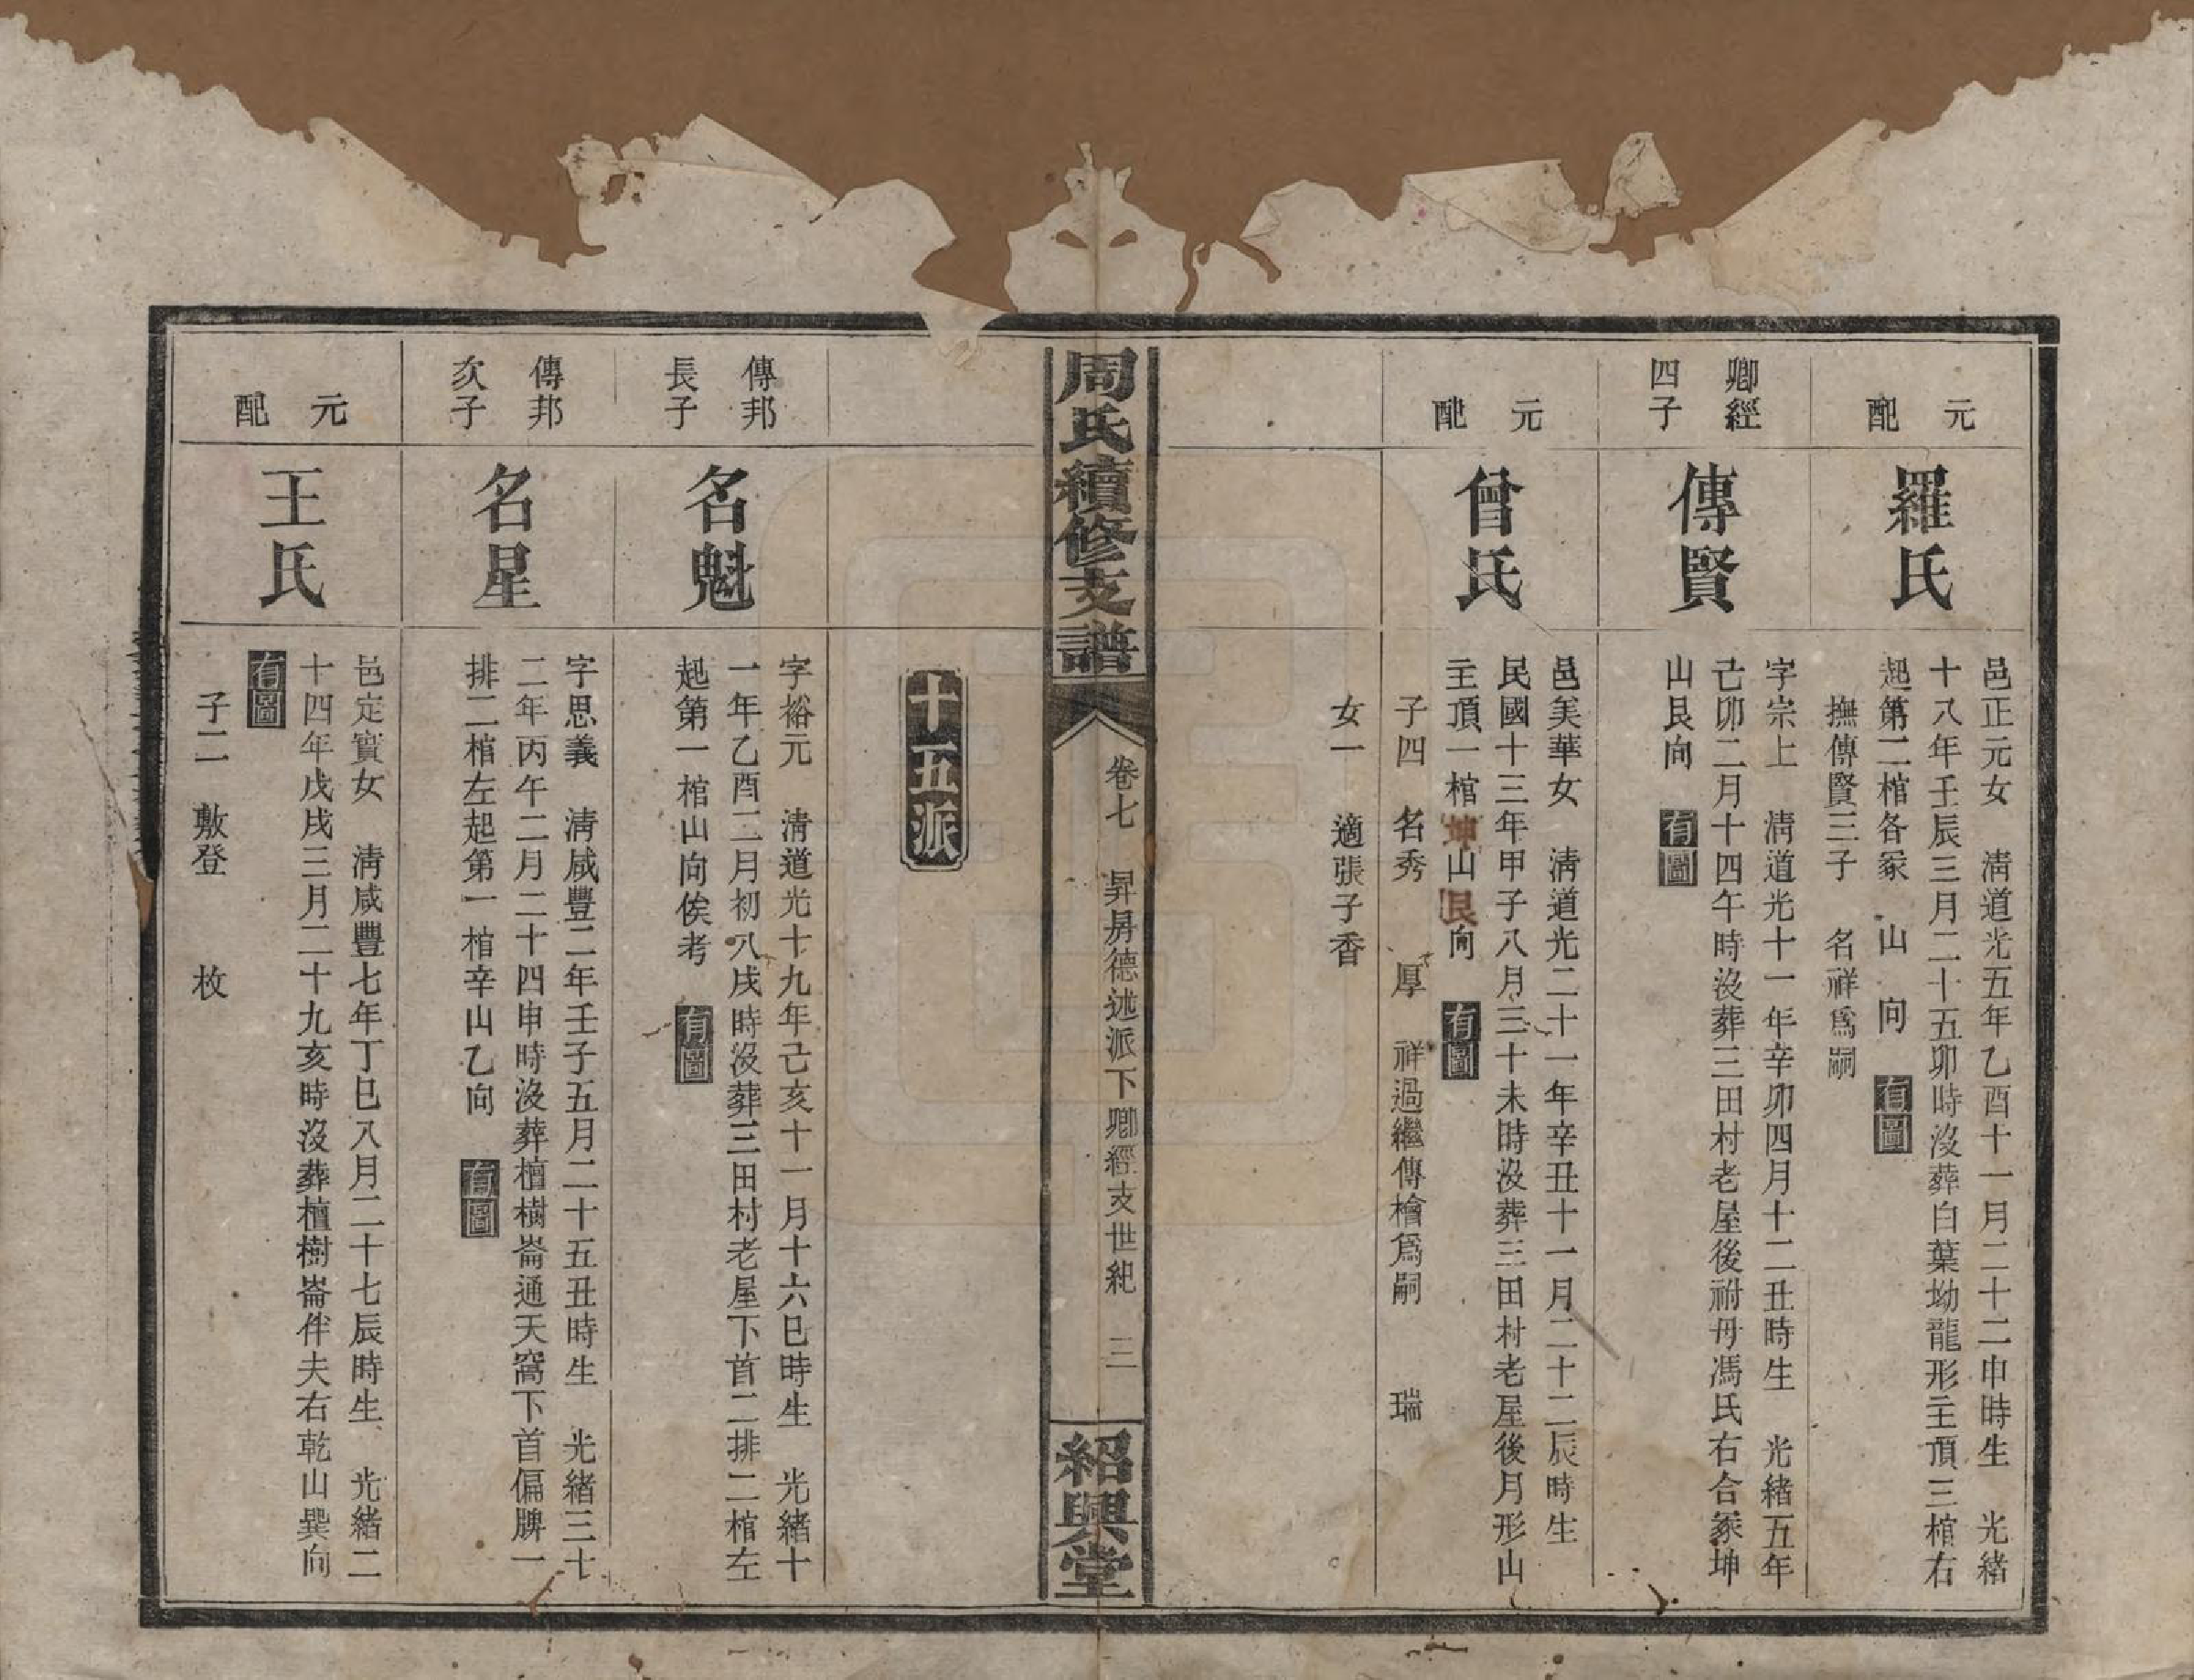 元配
羅氏
邑正元女　淸道光五年乙酉十一月二十二申時生　光緒
十八年壬辰三月二十五卯時沒葬白葉坳龍形主頂三棺右
起第二棺各冢　山　向　有圖
撫傳賢三子　名祥爲嗣
卿經四子
傳賢
字宗上　淸道光十一年辛卯四月十二丑時生　光緒五年
己卯二月十四午時沒葬三田村老屋後祔母馮氏右合冢坤
山艮向　有圖
元配
曾氏
邑美華女　淸道光二十一年辛丑十一月二十二辰時生
民國十三年甲子八月三十未時沒葬三田村老屋後月形山
主頂一棺坤山艮向　有圖
子四　名秀　厚　祥過繼傳檜爲嗣　瑞
女一　適張子香
周氏續修支譜
卷七　昇房德述派下卿經支世紀　三
紹興堂
十五派
傳邦長子
名魁
字裕元　淸道光十九年己亥十一月十六巳時生　光緒十
一年乙酉二月初八戌時沒葬三田村老屋下首二排二棺左
起第一棺山向俟考　有圖
傳邦次子
名星
字思義　淸咸豐二年壬子五月二十五丑時生　光緒三十
二年丙午二月二十四申時沒葬檀樹崙通天窩下首偏牌一
排二棺左起第一棺辛山乙向　有圖
元配
王氏
邑定賓女　淸咸豐七年丁巳八月二十七辰時生　光緒二
十四年戊戌三月二十九亥時沒葬檀樹崙伴夫右乾山巽向
有圖
子二　敷登　枚